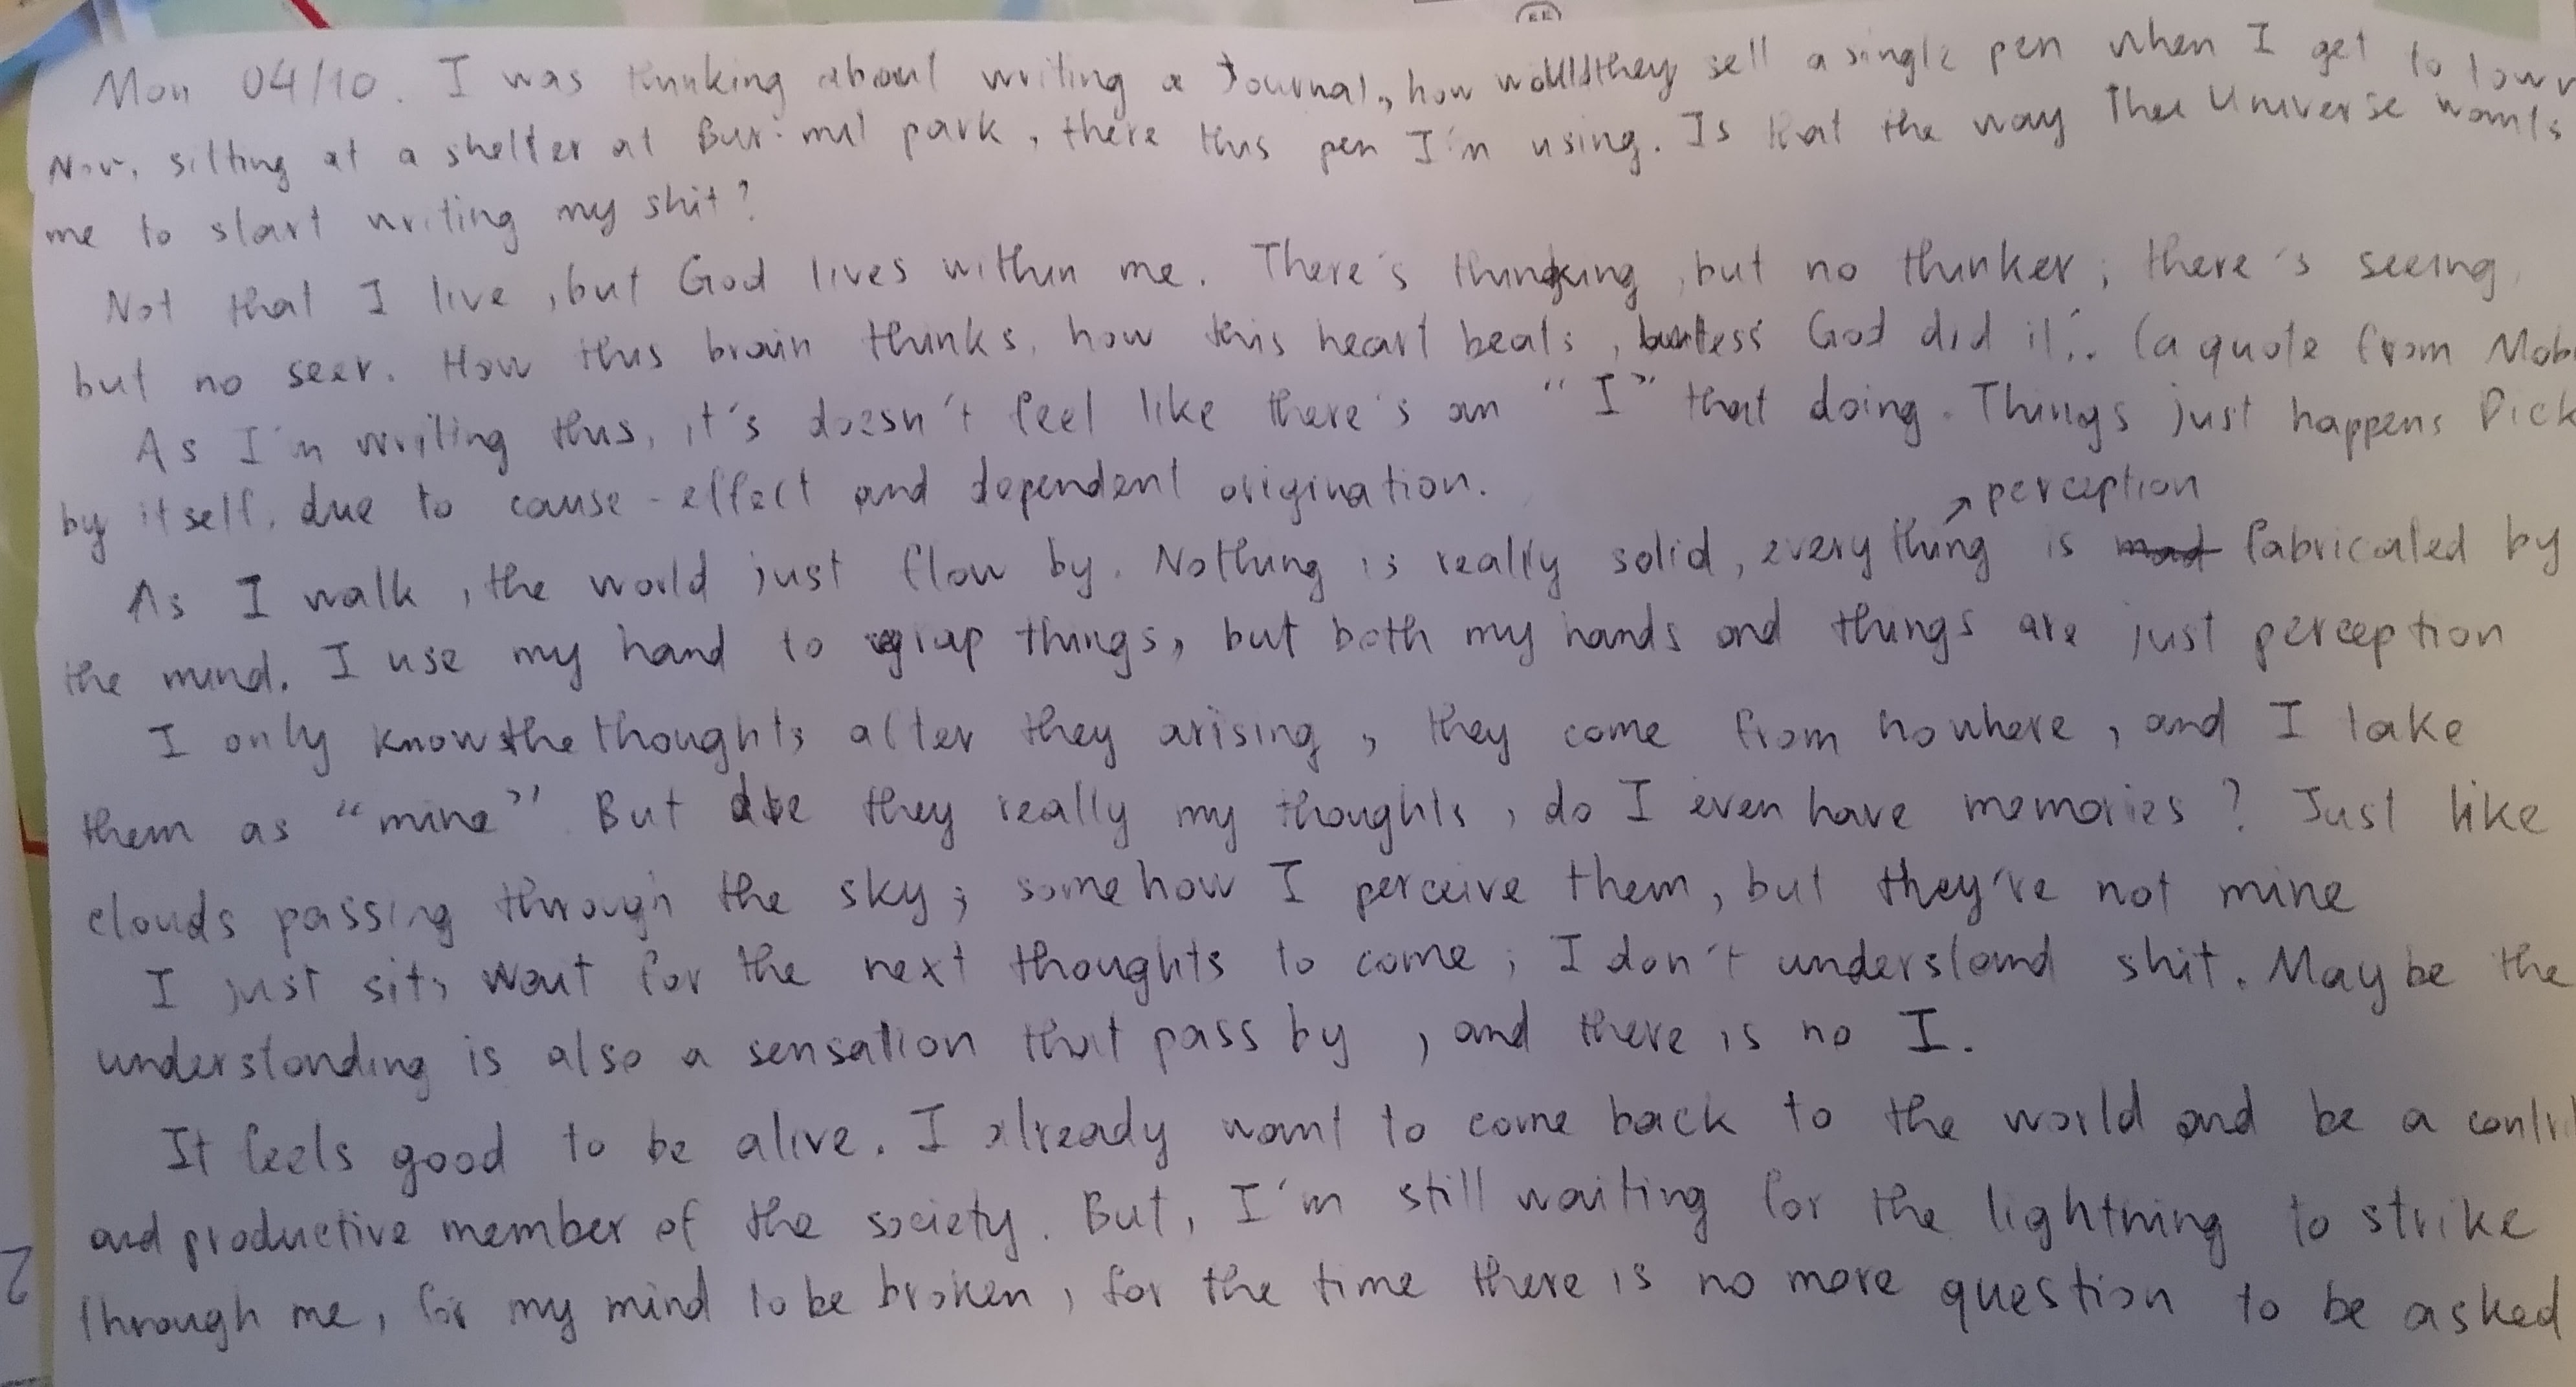 Mon 04/10. I was thinking about writing a Journal, how would they sell a single pen when I get to town
Now, sitting at a shelter at Bur-mil park, there this pen I'm using. Is that the way The Universe wants
me to start writing my shit?
Not that I live, but God lives within me. There's thinking, but no thinker; there's seeing,
but no seer. How this brain thinks, how this heart beats, unless God did it". (a quote from Moby
As I'm writing this, it's doesn't feel like there's an "I" that doing. Things just happens Dick
by itself, due to cause-effect and dependent origination.
↗ perception
As I walk, the world just flow by. Nothing is really solid, everything is fabricated by
the mind. I use my hand to grap things, but both my hands and things are just perception
I only know the thoughts after they arising, they come from nowhere, and I take
them as "mine". But are they really my thoughts, do I even have memories? Just like
clouds passing through the sky; somehow I perceive them, but they're not mine
I just sit, wait for the next thoughts to come; I don't understand shit. Maybe the
understanding is also a sensation that pass by, and there is no I.
It feels good to be alive. I already want to come back to the world and be a
and productive member of the society. But, I'm still waiting for the lightning to strike
through me, for my mind to be broken, for the time there is no more question to be asked